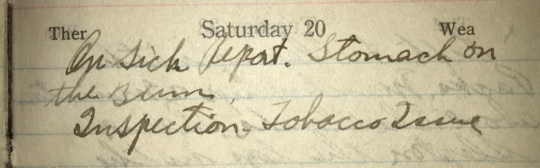 Ther Saturday 20 Wea
On Sick Report. Stomach on
the Bum.
Inspection - Tobacco Issue